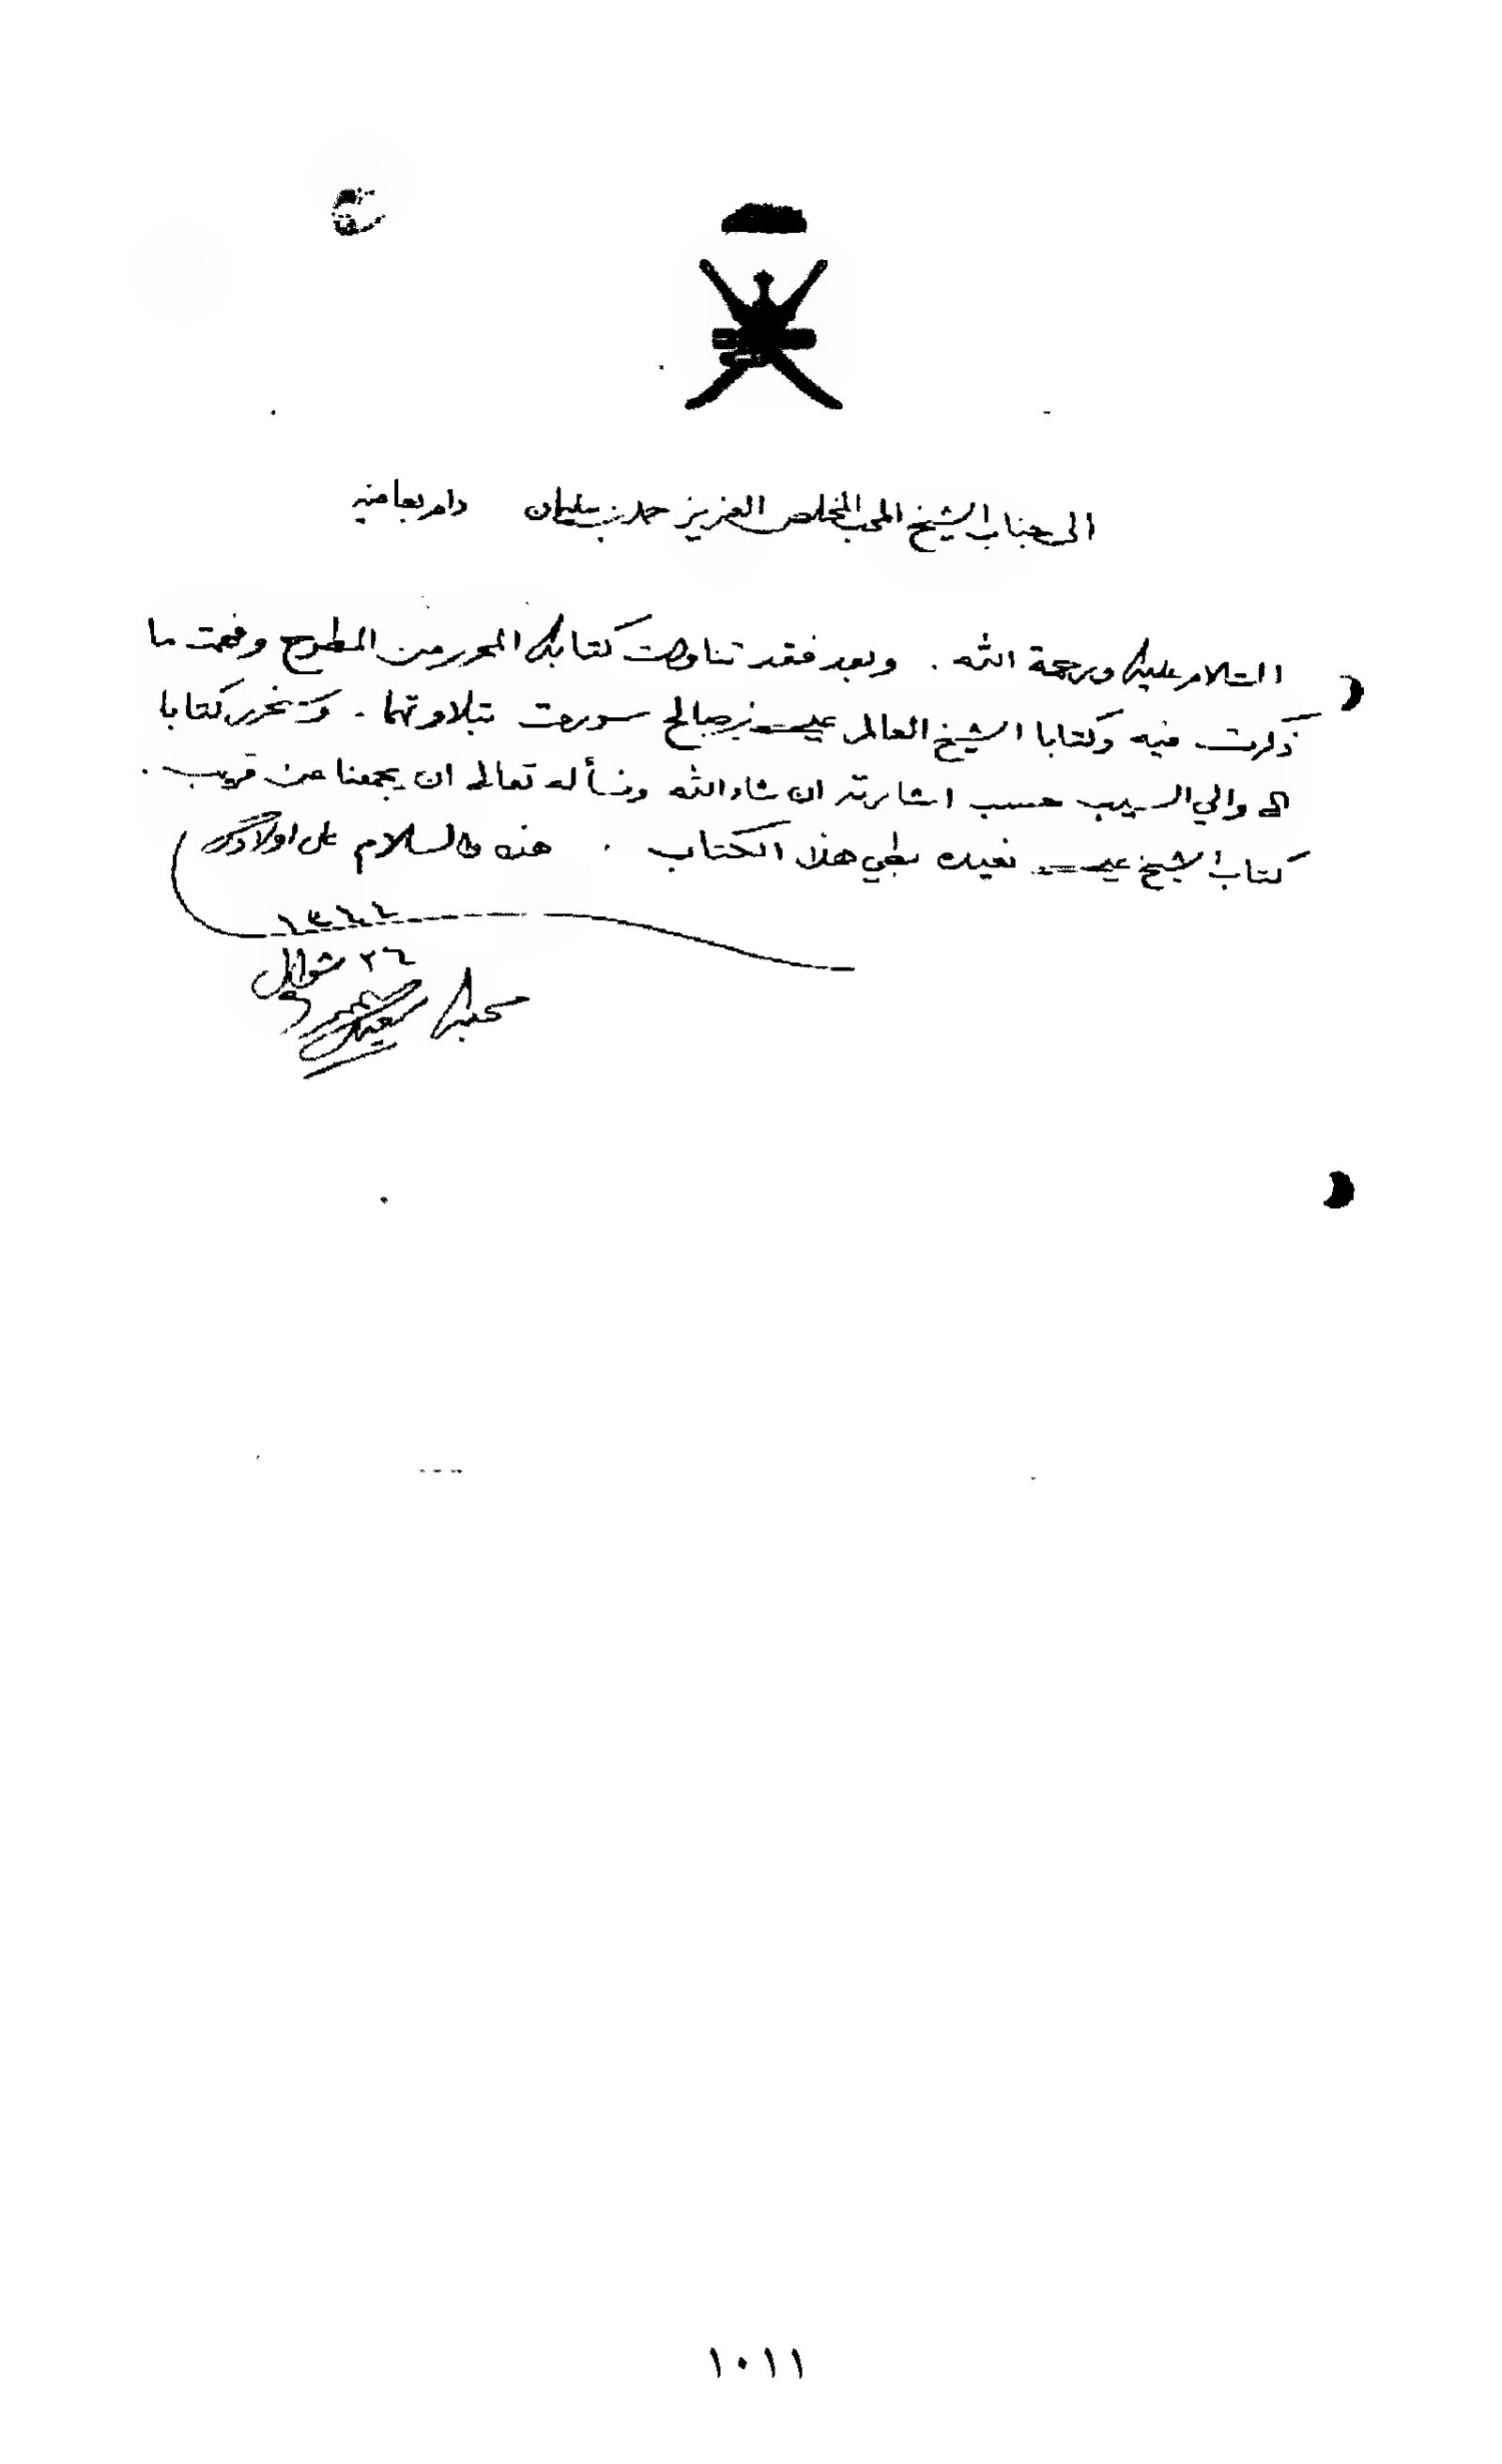 الى جناب الشيخ المحب المخلص العزيز حمد بن سليمان دام بعافيه
السلام عليك ورحمة الله . وبعد فقد تناولت كتابك المحرر من المطرح وفهمت ما
ذكرت فيه وكتابا الشيخ العالم عيسى بن صالح سررت بتلاوتهما . وسنحرر كتابا
الى والي السيب حسب اشارته ان شاء الله ونسأله تعالى ان يجمعنا عن قريب .
كتاب الشيخ عيسى نعيده بطي هذا الكتاب . هذه والسلام على اولادك
١٣٦٦
٢٦ شوال
محبك
سعيد
١٠١١